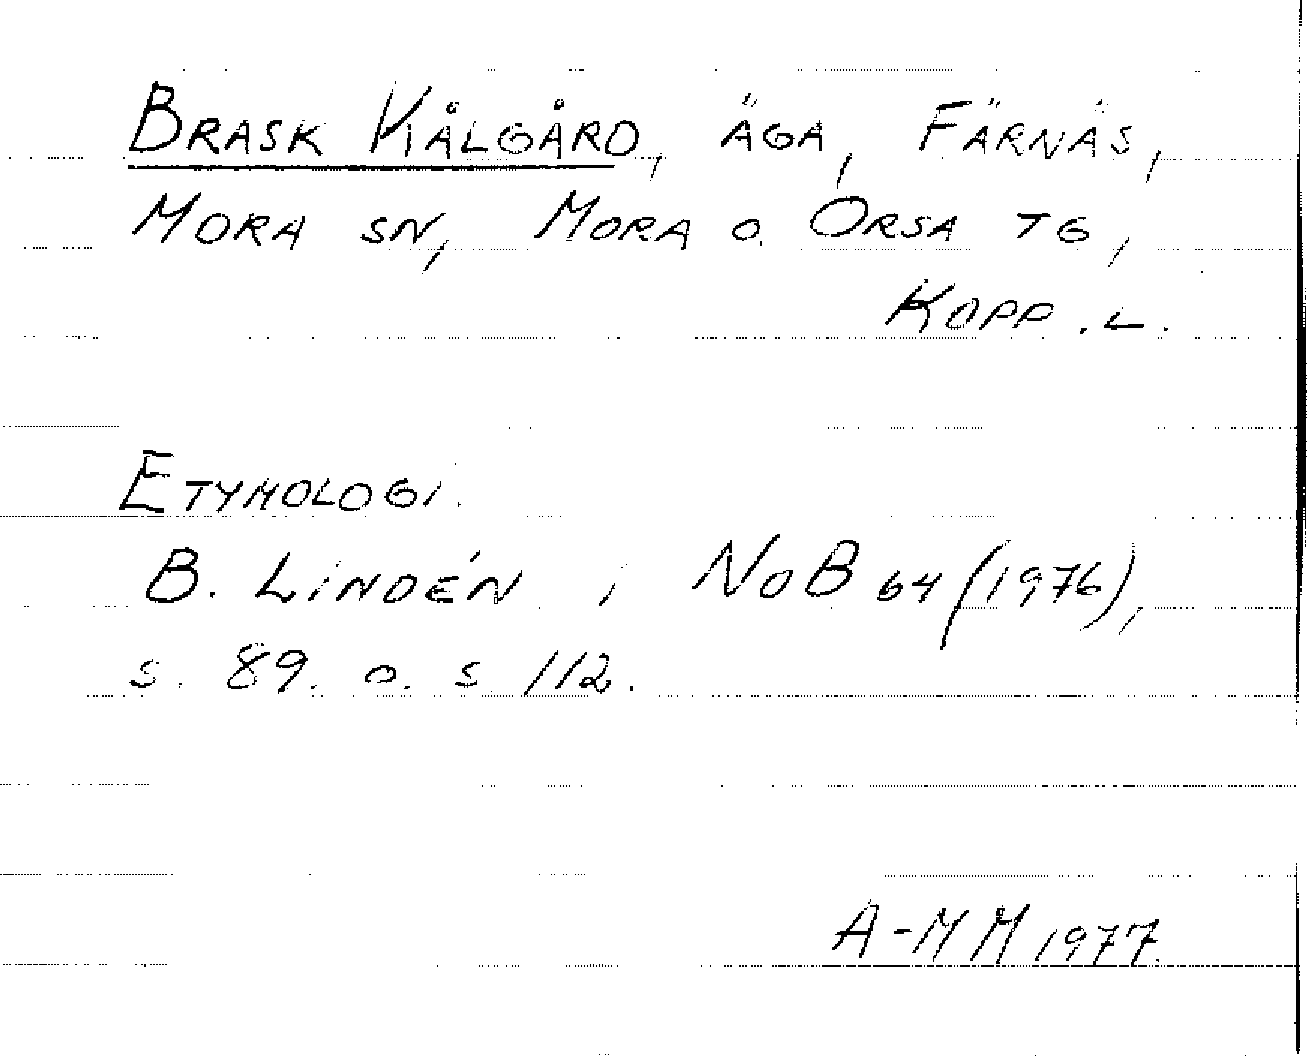 BRASK KÅLGÅRD, ÄGA, FÄRNÄS,
MORA SN, MORA O. ORSA TG,
KOPP. L.
ETYMOLOGI.
B. LINDÉN i NoB 64 (1976),
s. 89. o. s 112.
A-MM 1977.